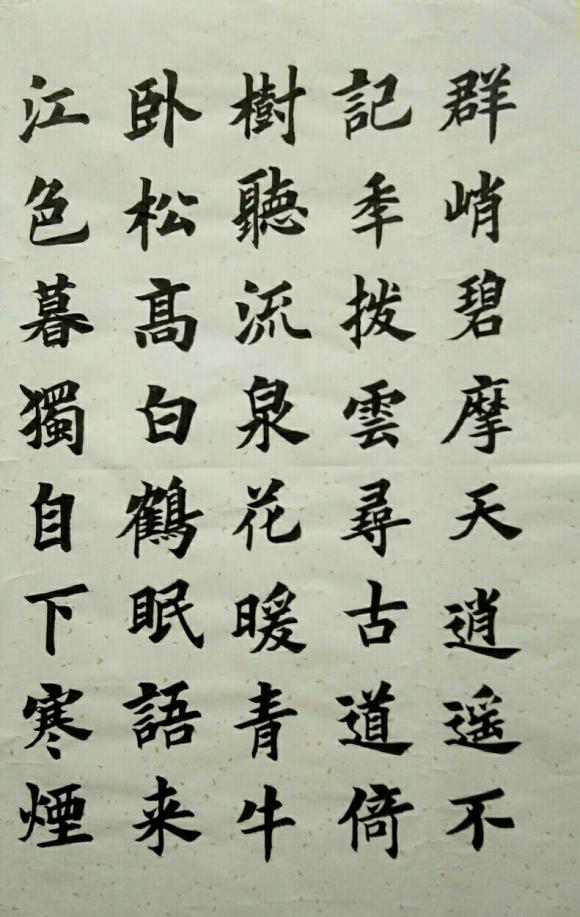 群峭碧摩天逍遥不
記年撥雲尋古道倚
樹聽流泉花暖青牛
卧松高白鶴眠語来
江色暮獨自下寒煙